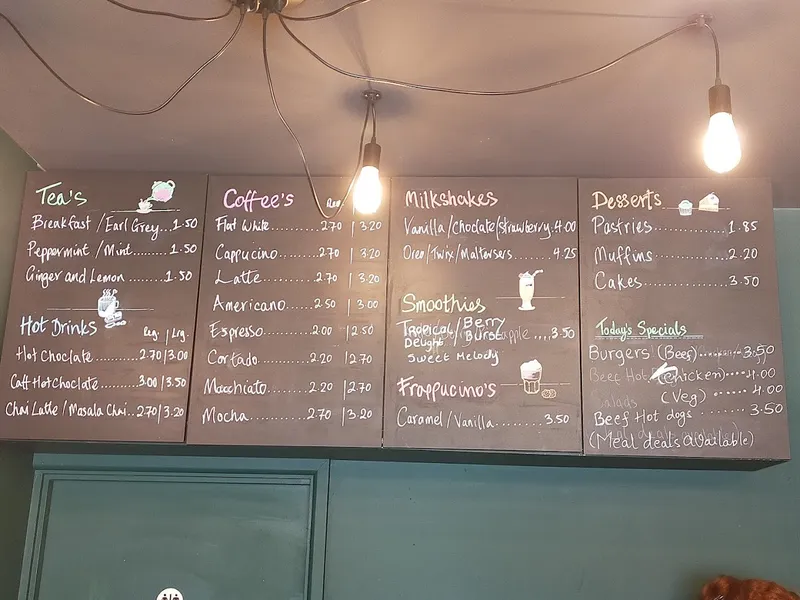 Tea's
Breakfast / Earl Grey...1.50
Peppermint / Mint......1.50
Ginger and Lemon........1.50
Hot Drinks Reg. | Lrg.
Hot Choclate..........2.70|3.00
Caff Hot Choclate........3.00|3.50
Chai Latte / Masala Chai..2.70|3.20
Coffee's Reg.
Flat White...........2.70 | 3.20
Cappucino...........2.70 | 3.20
Latte................2.70 | 3.20
Americano......2.50 | 3.00
Espresso........2.00 | 2.50
Cortado..........2.20 | 2.70
Macchiato........2.20 | 2.70
Mocha............2.70 | 3.20
Milkshakes
Vanilla/Choclate/strawberry.4.00
Oreo/Twix/Maltersers.......4.25
Smoothies
Tropical / Berry
Delight Burst ....3.50
Sweet Melody
Frappucino's
Caramel/Vanilla..........3.50
Desserts
Pastries..............1.85
Muffins..............2.20
Cakes................3.50
Today's Specials
Burgers (Beef)..........3.50
(Chicken)....4.00
(Veg)........4.00
Beef Hot dogs.......3.50
(Meal deals available)